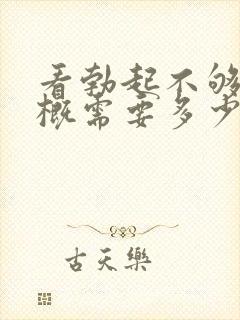 看勃起不够
概需要多少
古天乐